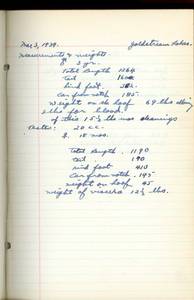 Dec 3, 1939. Goldstream Lakes.
Measurements & weights.
♂ 3 yr.
Total length 1264
tail
hind foot
ear from notch 185
Weight on the hoof 69 lbs
of this 15½ lbs
Testes: 20 cc.
18 mos.
Total length. 1190
tail 190
hind foot 410
Ear from notch. 195
weight on hoof 45
weight of viscera 12½ lbs.